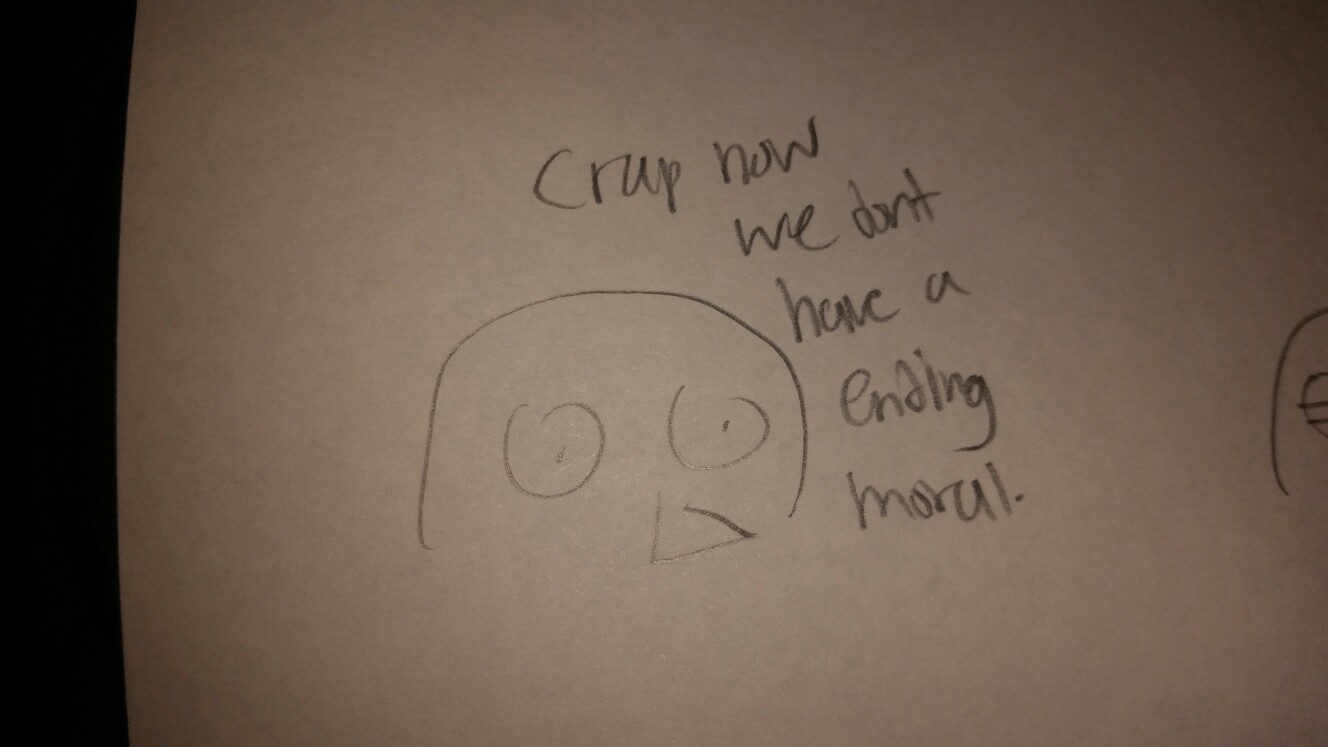 Crap now
we dont
have a
ending
moral.